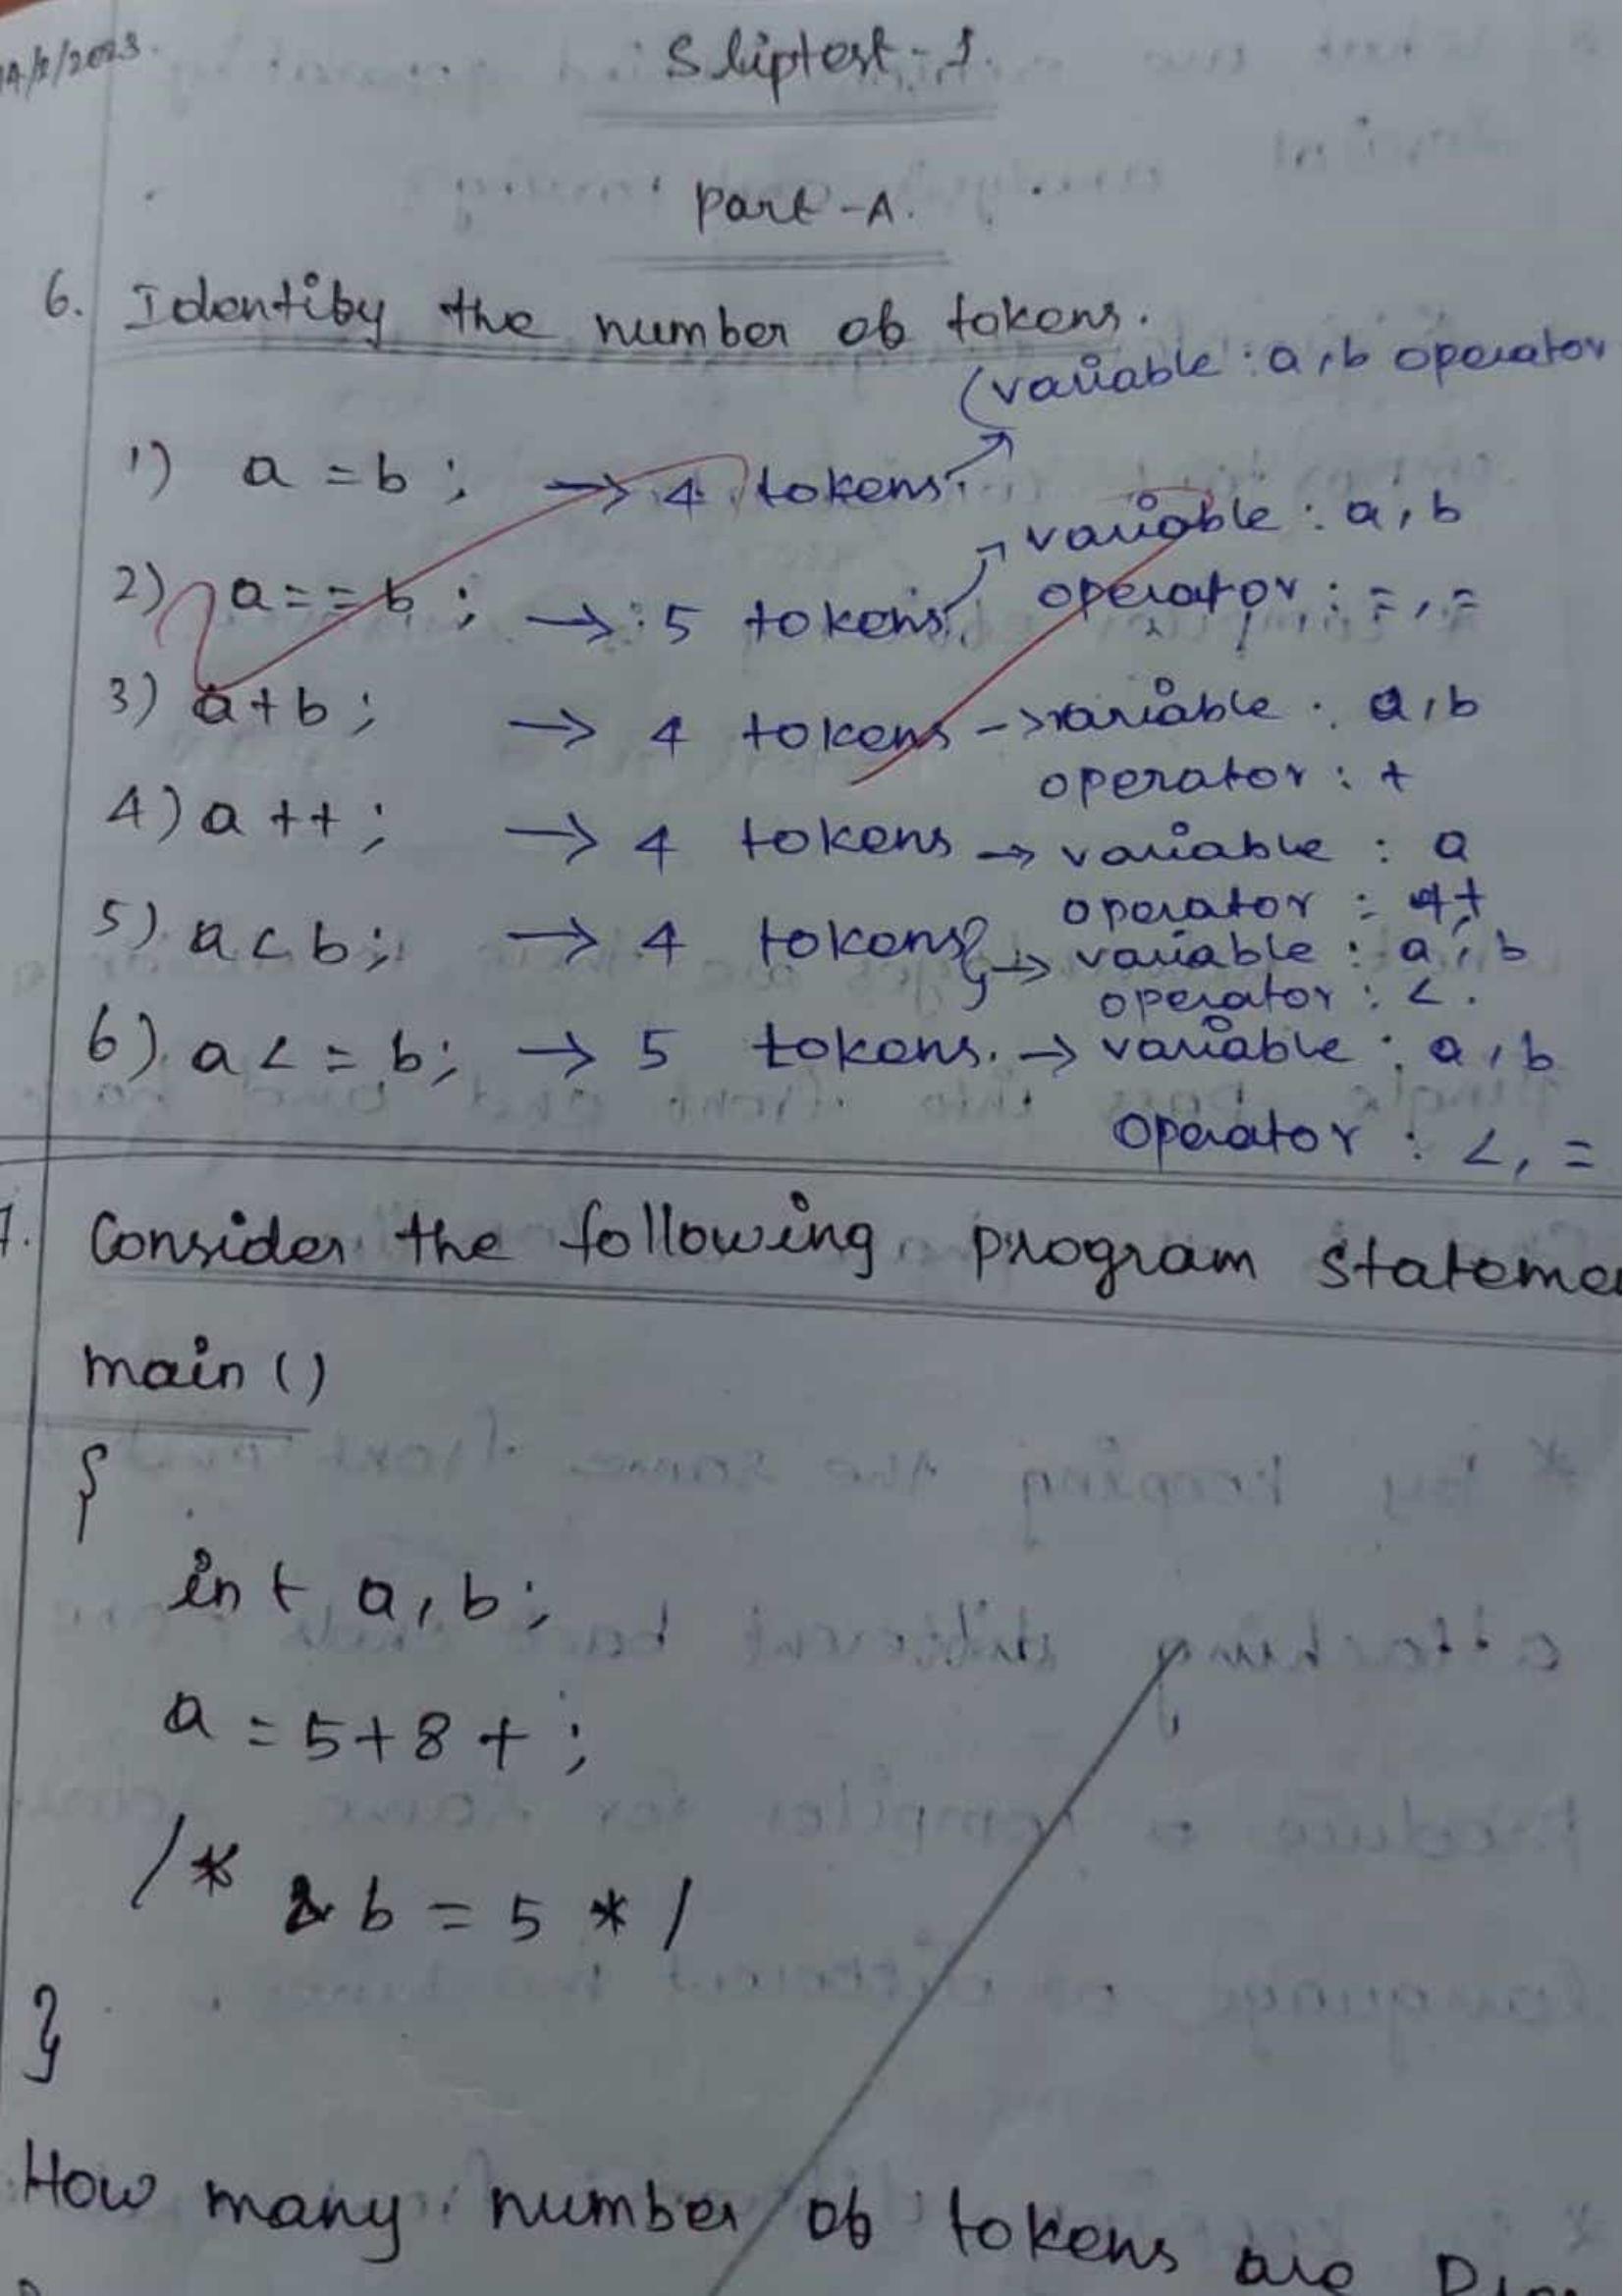 Sliptest - 1.
Part - A.
6. Identify the number of tokens.
(variable : a, b operator
1) a = b ; → 4 tokens.
variable : a, b
2) a = = b ; → 5 tokens
operator : =, =
3) a + b ; → 4 tokens → variable : a, b
operator : +
4) a ++ ; → 4 tokens → variable : a
operator : ++
5) a < b ; → 4 tokens → variable : a, b
operator : < .
6) a < = b ; → 5 tokens. → variable : a, b
Operator : <, =
7. Consider the following program
main ()
{
int a, b ;
a = 5 + 8 + ;
/* b = 5 */
}
How many number of tokens are